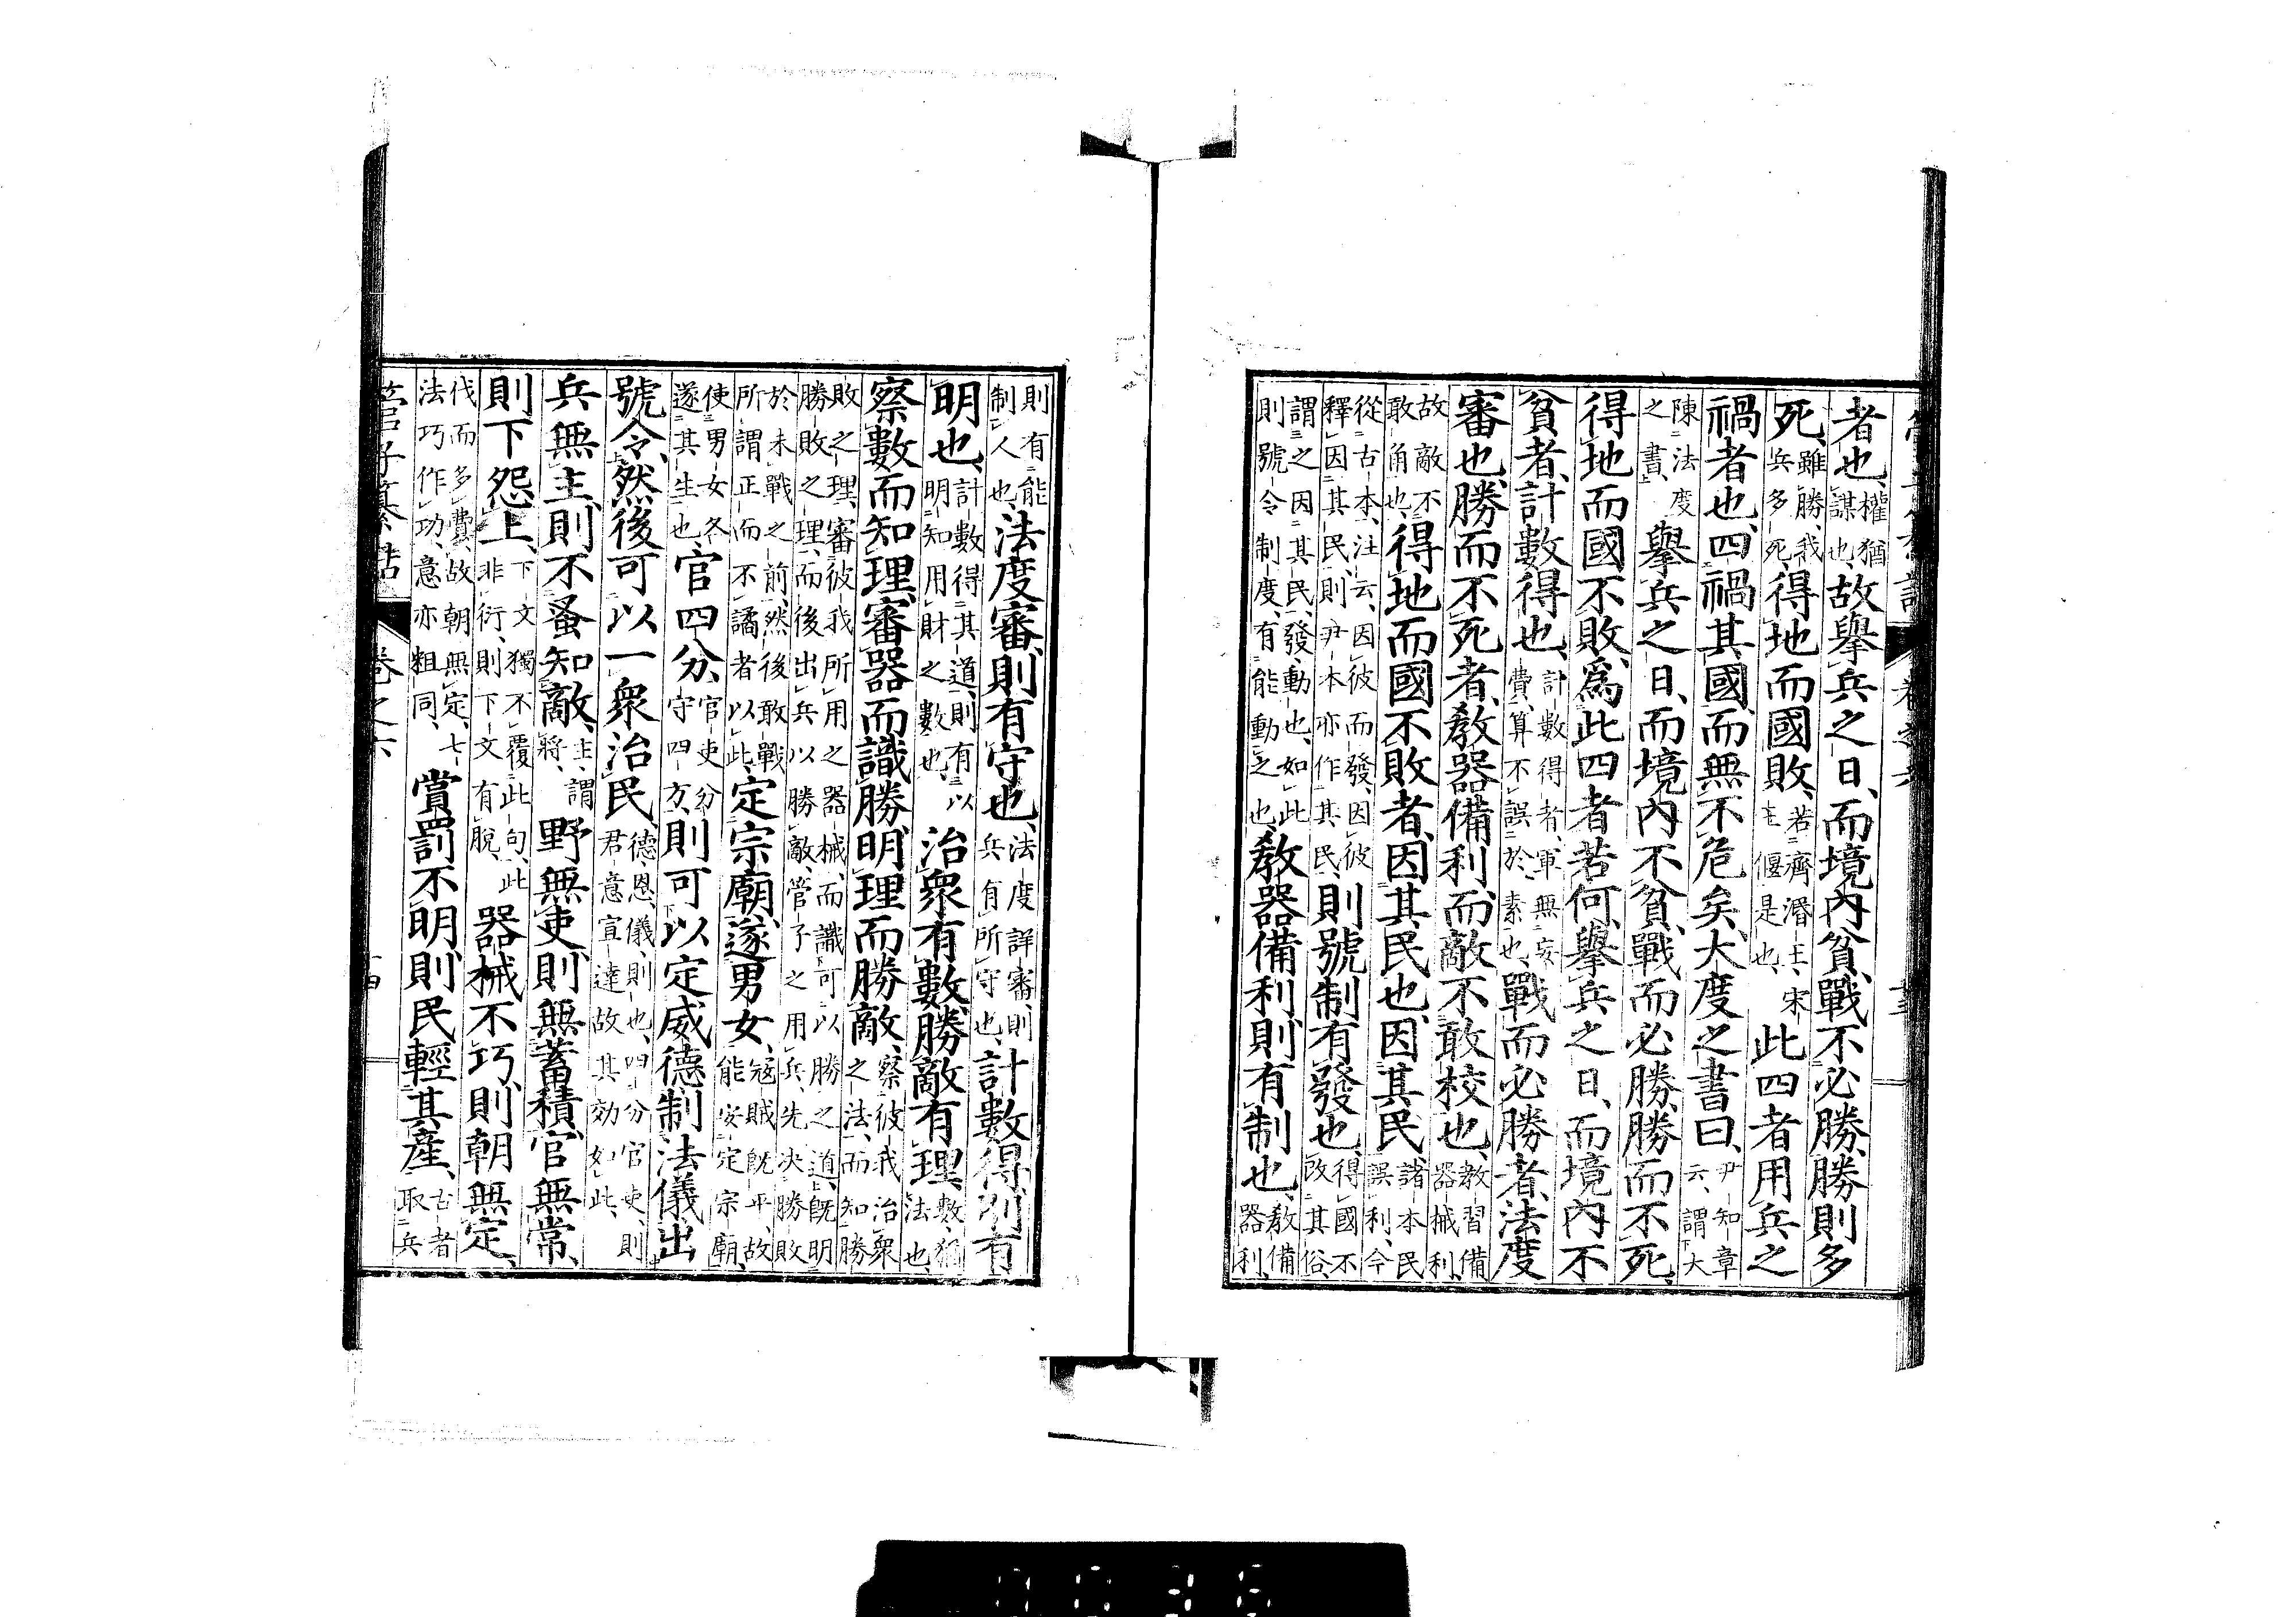 管子纂詁 卷之六
者也、權猶謀也、故擧兵之日、而境内貧、戰不必勝、勝則多
死、雖勝、我兵多死、得地而國敗、若齊湣王、宋王偃是也、此四者用兵之
禍者也、四禍其國、而無不危矣、大度之書曰、尹知章云、謂大
陳法度之書、擧兵之日、而境内不貧、戰而必勝、勝而不死、
得地而國不敗、爲此四者若何、擧兵之日、而境内不
貧者、計數得也、計數得者、軍無妄費、算不誤於素也、戰而必勝者、法度
審也、勝而不死者、敎器備利、而敵不敢校也、教習備器械利、
故敵不敢角也、得地而國不敗者、因其民也、因其民諸本民誤利、今
從古本、注云、因彼而發、因彼釋因其民、則尹本亦作其民、則號制有發也、得國不改其俗、
謂之因其民、發動也、如此則號令制度、有能動之也、敎器備利、則有制也、敎備器利、
則有能制人也、法度審、則有守也、法度詳審、則兵有所守也、計數得、則有
明也、計數得其道、則有以明知用財之數也、治衆有數、勝敵有理、數猶法也、
察數而知理、審器而識勝、明理而勝敵、察彼我治衆之法、而知勝
敗之理、審彼我所用之器械、而識可以勝之道、既明勝敗之理、而後出兵以勝敵、管子之用兵、先決勝敗
於未戰之前、然後敢戰、所謂正而不譎者以此、定宗廟、遂男女、寇賊既平、故能安定宗廟、
使男女各遂其生也、官四分、官吏分守四方、則可以定威德、制法儀、出
號令、然後可以一衆治民、德恩、儀、則也、四分官吏、則君意宣達、故其効如此、
兵無主、則不蚤知敵、主、謂將、野無吏、則無蓄積、官無常、
則下怨上、下文獨不覆此句、此非衍、則下文有脱、器械不巧、則朝無定、
伐而多費、故朝無定、七法巧作功、意亦粗同、賞罰不明、則民輕其產、古者取兵
管子纂詁 卷之六 十四